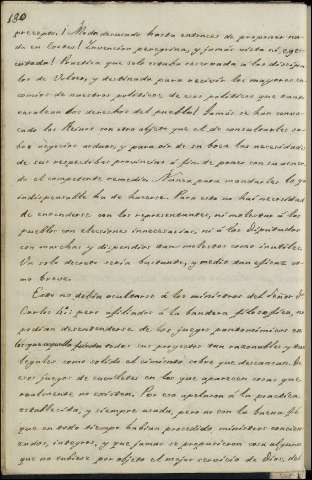 190
preceptos! Modo desusado hasta entonces de proponer na-
da en Cortes! Invencion peregrina, y jamás vista ni eger-
citada! Practica que solo estaba reservada á los discipu-
los de Volter, y destinada para recivir los mayores en-
comios de nuestros politicos, de esos politicos que tanto
encarecen los derechos del pueblo! Jamás se han convo-
cado los Reinos con otro objeto que el de consultarles so-
bre negocios arduos, y para oir de su boca las necesidades
de sus respectibas provincias á fin de poner con su acuer-
do el competente remedio. Nunca para mandarles lo que
indispensable ha de hacerse. Para esto no hai necesidad
de entenderse con los representantes, ni molestar á los
pueblos con elecciones innecesarias, ni á los Diputados
con marchas y dispendios tan molestos como inutiles.
Un solo decreto seria bastante, y medio tan eficaz co-
mo breve.
Esto no debia ocultarse á los ministros del Señor D.
Carlos 4º; pero afiliados á la bandera filosofica, no
podian desentenderse de los juegos
todos sus proyectos tan razonables y tan
legales como solido el cimiento sobre que descansan. De
esos juegos de cubiletes en los que aparecen cosas que
realmente no existen. Por eso apelaron á la practica
establecida, y siempre usada, pero no con la buena fé
que en todo tiempo habian procedido ministros concien-
zudos, integros, y que jamás se propusieron cosa alguna
que no tubiese por objeto el mejor servicio de Dios, del